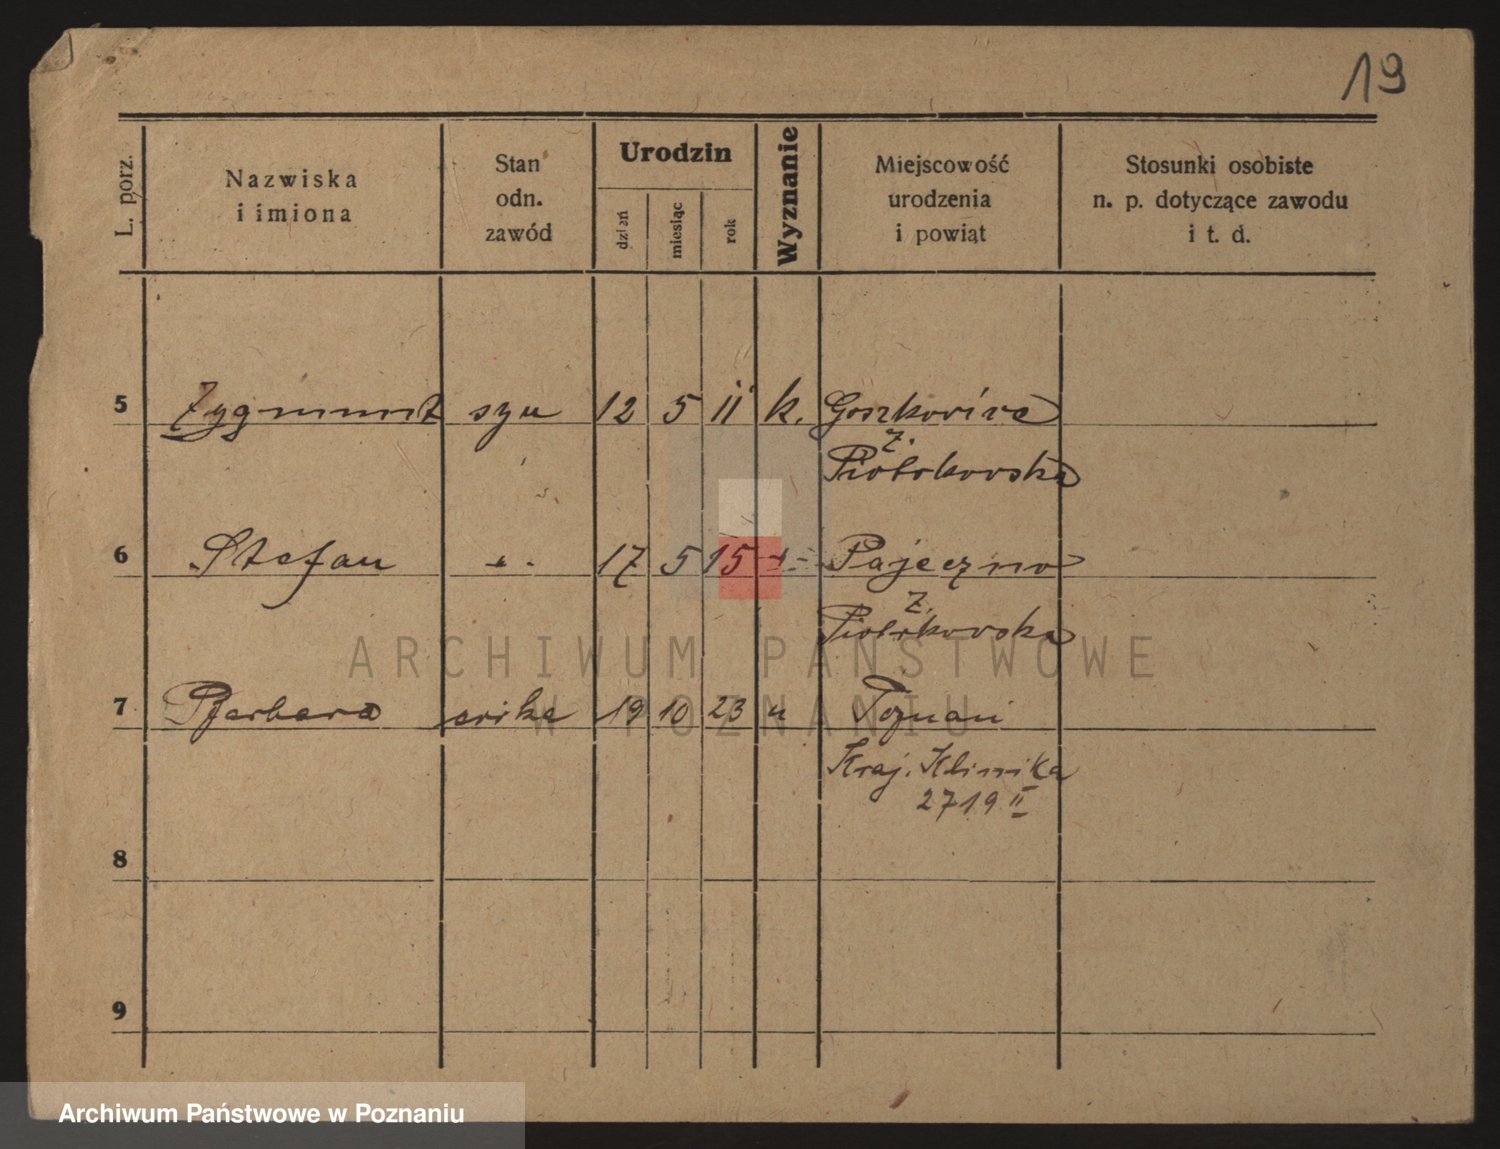 19
L. porz.
Nazwiska
i imiona
Stan
odn.
zawód
Urodzin
dzień
miesiąc
rok
Wyznanie
Miejscowość
urodzenia
i powiąt
Stosunki osobiste
n. p. dotyczące zawodu
i t. d.
5 Zygmunt syn 12 5 11 k.
z.
Piotrkowska
6 Stefan 17 5 15 Pajeczno
z.
Piotrkowska
7 Barbara 19 10 23 Poznań
Kraj. Klinika
2719 II
8
9
ARCHIWUM PAŃSTWOWE
W POZNANIU
Archiwum Państwowe w Poznaniu